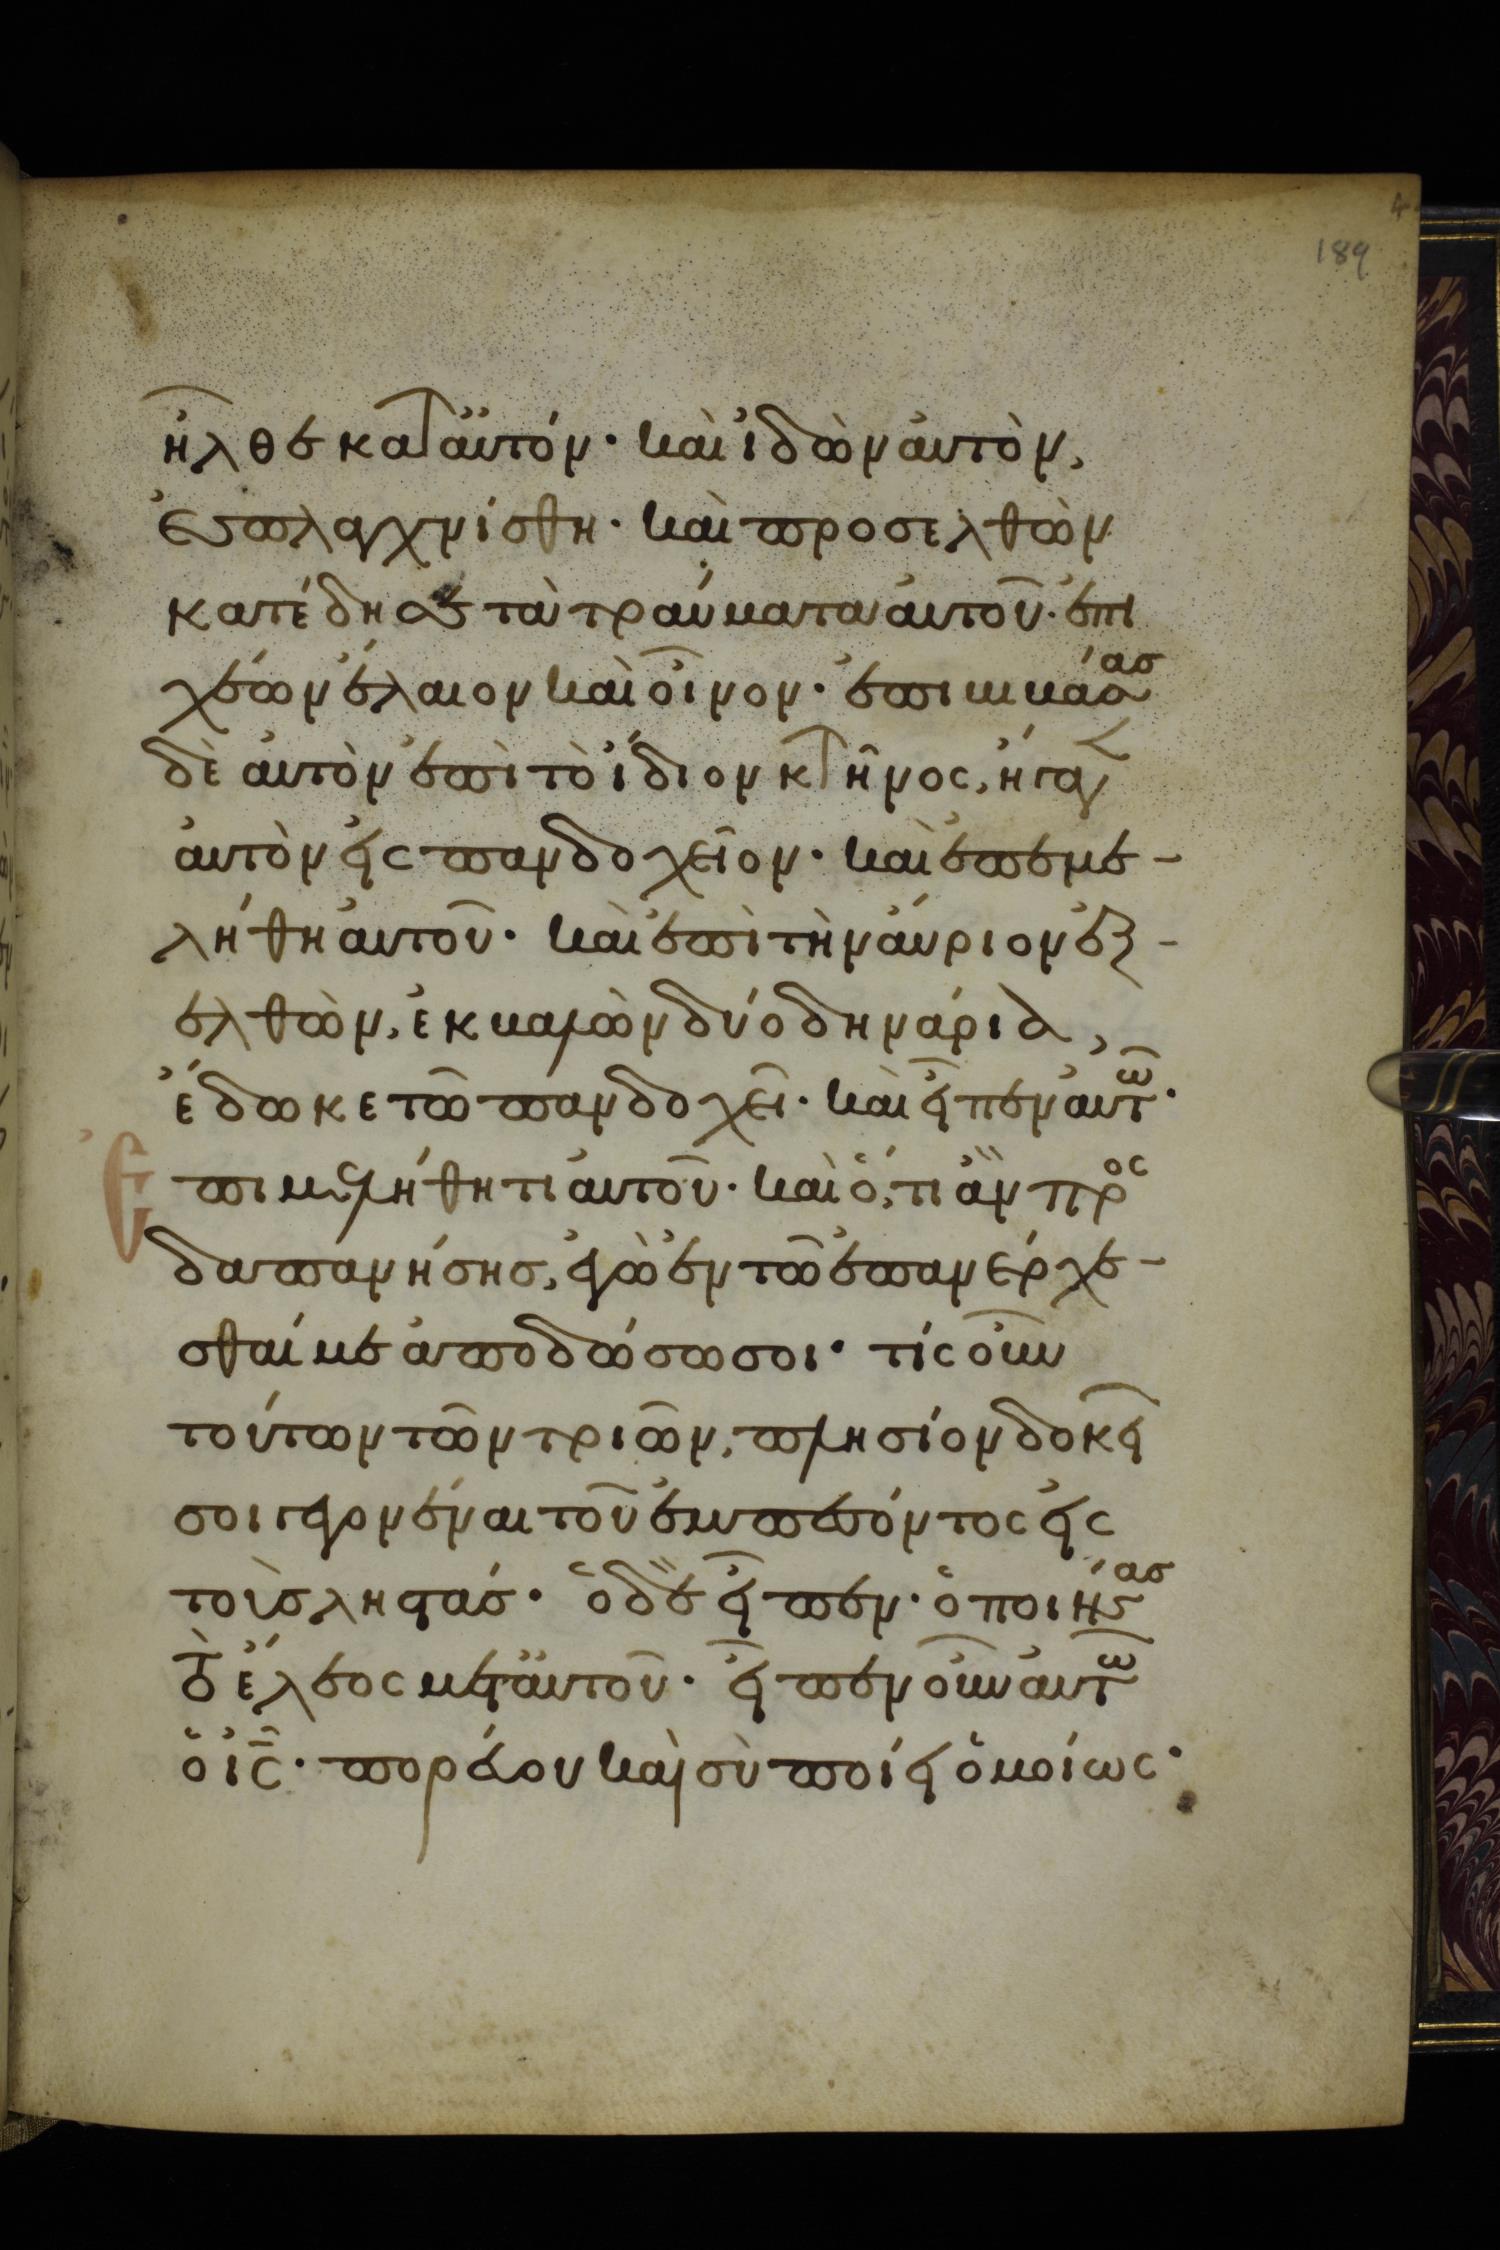 4
189
ἦλθε κατ αὐτόν· καὶ ἰδὼν αὐτὸν,
ἐσπλαγχνίσθη· καὶ προσελθὼν
κατέδησε τὰ τραύματα αὐτοῦ· ἐπι
χέων ἔλαιον καὶ οἶνον· ἐπιβιβάσας
δὲ αὐτὸν ἐπὶ τὸ ἴδιον κτῆνος, ἤγαγ
αὐτὸν εἰς πανδοχεῖον· καὶ ἐπεμε-
λήθη αὐτοῦ· καὶ ἐπὶ τὴν αὔριον ἐξ-
ελθὼν, ἐκβαλὼν δύο δηνάρια,
ἔδωκε τῶ πανδοχεῖ· καὶ εἶπεν αὐτῶ·
Ἐπιμελήθητι αὐτοῦ· καὶ ὅ,τι ἂν προσ
δαπανήσης, ἐγὼ ἐν τῶ ἐπανέρχε-
σθαί με ἀποδώσω σοι· τίς οὖν
τούτων τῶν τριῶν, πλησίον δοκεῖ
σοι γεγονέναι τοῦ ἐμπεσόντος εἰς
τοὺς ληστάς· ὁ δὲ εἶπεν· ὁ ποιήσας
τὸ ἔλεος μετ αὐτοῦ· εἶπεν οὖν αὐτῶ
ὁ ἰς· πορεύου καὶ σὺ ποίει ὁμοίως·